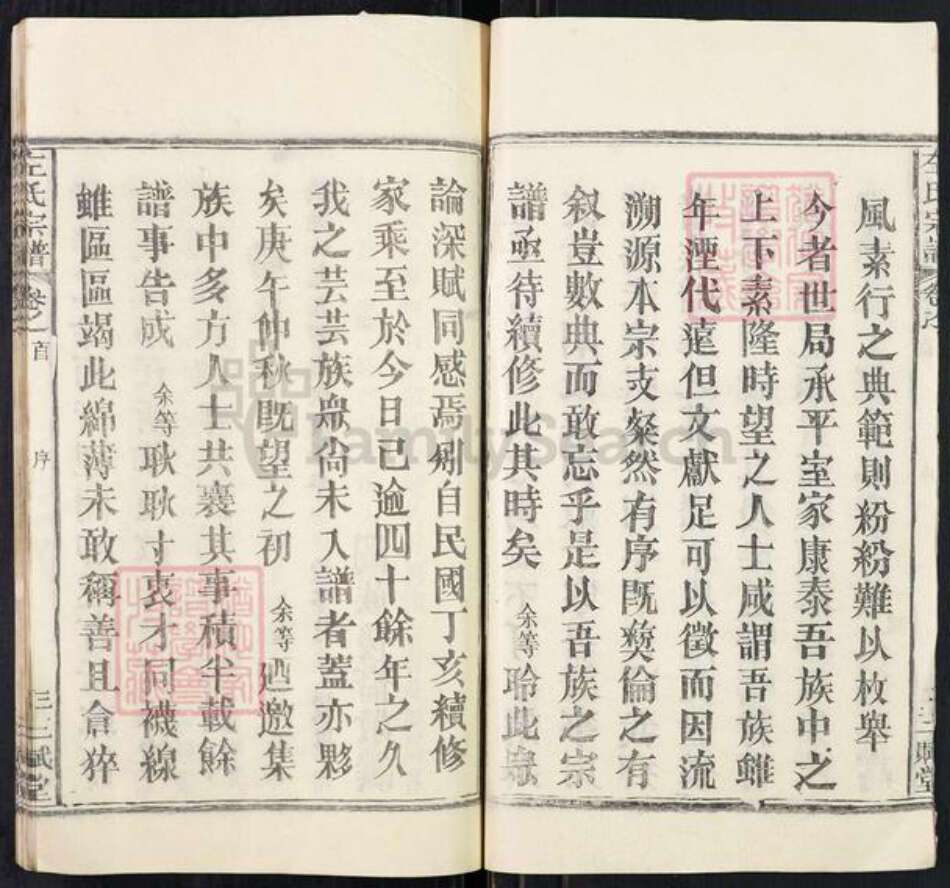 風素行之典範則紛紛難以枚舉
今者世局承平室家康泰吾族中之
上下素隆時望之人士咸謂吾族雖
年湮代遠但文獻足可以徵而因流
溯源本宗支粲然有序既彝倫之有
叙豈數典而敢忘乎是以吾族之宗
譜亟待續修此其時矣 余等 聆此崇
論深賦同感焉剏自民國丁亥續修
家乘至於今日已逾四十餘年之久
我之芸芸族衆尙未入譜者蓋亦夥
矣庚午仲秋既望之初 余等 廼邀集
族中多方人士共襄其事積半載餘
譜事告成 余等 耿耿寸衷才同襪線
雖區區竭此綿薄未敢稱善且倉猝
左氏宗譜 卷之首 序 三 三賦堂
FamilySearch